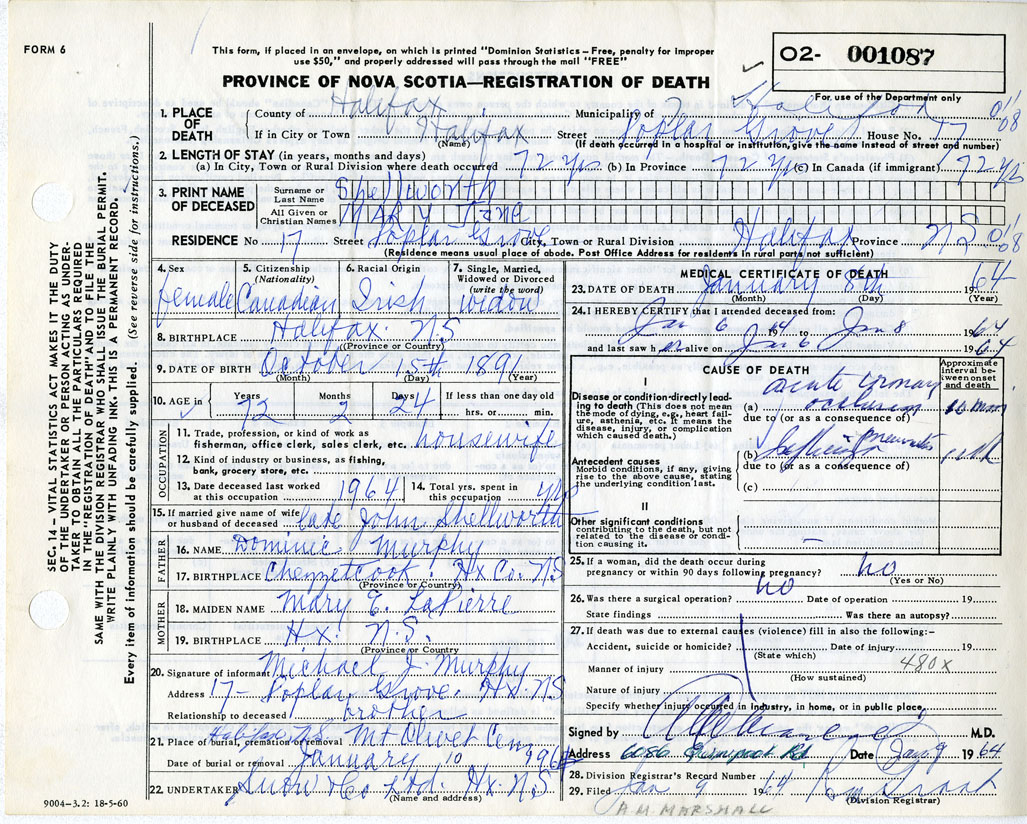 FORM 6
This form, if placed in an envelope, on which is printed "Dominion Statistics – Free, penalty for improper
use $50," and properly addressed will pass through the mail "FREE"
PROVINCE OF NOVA SCOTIA—REGISTRATION OF DEATH
02- 001087
For use of the Department only
1. PLACE OF DEATH
County of Halifax Municipality of Halifax 01'08
If in City or Town Halifax Street Poplar Grove House No. 17
(Name) (If death occurred in a hospital or institution, give the name instead of street and number)
2. LENGTH OF STAY (in years, months and days)
(a) In City, Town or Rural Division where death occurred 72 yrs (b) In Province 72 yrs (c) In Canada (if immigrant) 72 yrs
3. PRINT NAME OF DECEASED
Surname or Last Name Shellworth
All Given or Christian Names MARY Jane
RESIDENCE No 17 Street Poplar Grove City, Town or Rural Division Halifax Province NS 01'08
(Residence means usual place of abode. Post Office Address for residents in rural parts not sufficient)
4. Sex female
5. Citizenship (Nationality) Canadian
6. Racial Origin Irish
7. Single, Married, Widowed or Divorced (write the word) widow
8. BIRTHPLACE Halifax. NS
(Province or Country)
9. DATE OF BIRTH October 15th 1891
(Month) (Day) (Year)
10. AGE in Years 72 Months 2 Days 24 If less than one day old hrs. or min.
OCCUPATION
11. Trade, profession, or kind of work as fisherman, office clerk, sales clerk, etc. housewife
12. Kind of industry or business, as fishing, bank, grocery store, etc.
13. Date deceased last worked at this occupation 1964
14. Total yrs. spent in this occupation yrs
15. If married give name of wife or husband of deceased late John Shellworth
FATHER
16. NAME Dominic Murphy
17. BIRTHPLACE Chezzetcook. Hx Co. NS
(Province or Country)
MOTHER
18. MAIDEN NAME Mary E. LaPierre
19. BIRTHPLACE Hx. N.S.
(Province or Country)
20. Signature of informant Michael J. Murphy
Address 17 - Poplar Grove. Hx. NS
Relationship to deceased brother
21. Place of burial, cremation or removal Halifax NS Mt Olivet Cem
Date of burial or removal January 10 1964
22. UNDERTAKER Snow & Co Ltd. Hx. NS
(Name and address)
9004–3.2: 18-5-60
MEDICAL CERTIFICATE OF DEATH
23. DATE OF DEATH January 8th 1964
(Month) (Day) (Year)
24. I HEREBY CERTIFY that I attended deceased from:
Jan 6 1964 to Jan 8 1964
and last saw her alive on Jan 6 1964
CAUSE OF DEATH
Approximate interval between onset and death
I
Disease or condition directly leading to death (This does not mean the mode of dying, e.g., heart failure, asthenia, etc. It means the disease, injury, or complication which caused death.)
(a) acute coronary occlusion
due to (or as a consequence of)
Antecedent causes
Morbid conditions, if any, giving rise to the above cause, stating the underlying condition last.
(b)
due to (or as a consequence of)
(c)
II
Other significant conditions
contributing to the death, but not related to the disease or condition causing it.
25. If a woman, did the death occur during pregnancy or within 90 days following pregnancy? no
(Yes or No)
26. Was there a surgical operation? no Date of operation 19
State findings Was there an autopsy?
27. If death was due to external causes (violence) fill in also the following:–
Accident, suicide or homicide? Date of injury 19
(State which)
480x
Manner of injury
(How sustained)
Nature of injury
Specify whether injury occurred in industry, in home, or in public place
Signed by M.D.
Address 6056 Rd Date Jan 9 1964
28. Division Registrar's Record Number 14
29. Filed Jan 9 1964
(Division Registrar)
A.M. MARSHALL
SEC. 14 – VITAL STATISTICS ACT MAKES IT THE DUTY
OF THE UNDERTAKER OR PERSON ACTING AS UNDER-
TAKER TO OBTAIN ALL THE PARTICULARS REQUIRED
IN THE "REGISTRATION OF DEATH" AND TO FILE THE
SAME WITH THE DIVISION REGISTRAR WHO SHALL ISSUE THE BURIAL PERMIT.
WRITE PLAINLY WITH UNFADING INK. THIS IS A PERMANENT RECORD.
Every item of information should be carefully supplied. (See reverse side for instructions.)